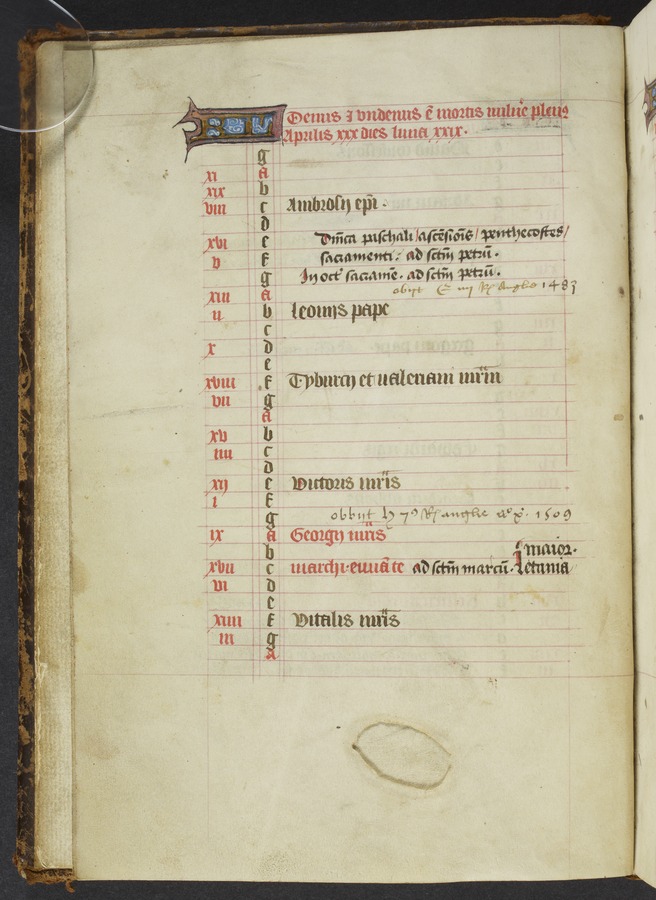 Denus ⁊ undenus ē mortis uulnꝰe plenꝰ
Aprilis xxx dies luna xxix.
g
xi a
xix b
viii c Ambrosij epī.
d
xvi e Dn̄ica paschali / ascēsiōis / penthecostes /
v f sacramenti: ad sctm̄ petrū.
g In oct̄ sacrame. ad sctm̄ petrū.
xiii a obijt E iiij Rex Anglie 1483
ii b Leonis pape
c
x d
e
xviii f Tyburcij et ualeriani mr̄m
vii g
a
xv b
iiii c
d
xij e Victoris mr̄is
i f
g obbijt h 7ꝰ Rex anglie 1509
ix a Georgij mr̄is
b maior.
xvii c marchi euuāte ad sctm̄ marcū. Letania
vi d
e
xiiii f Vitalis mr̄is
iii g
a